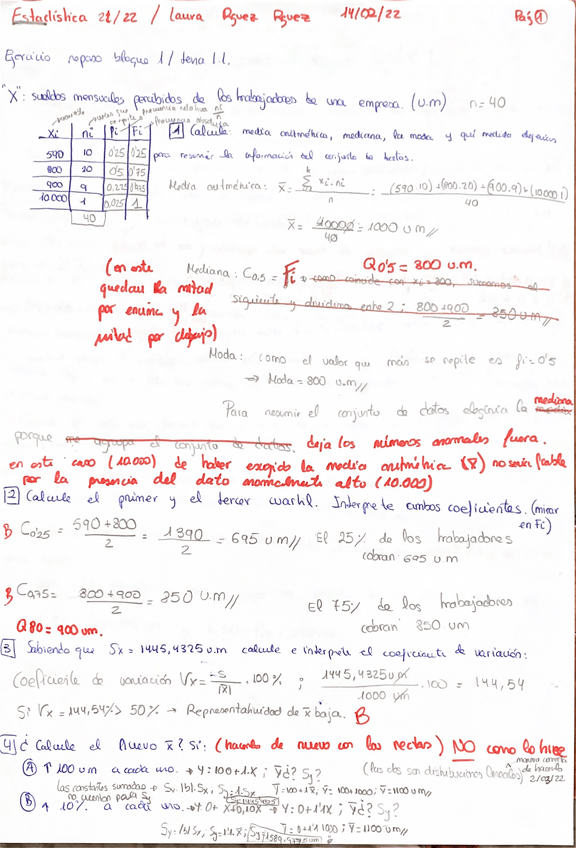 Estadística 21/22 / Laura Rguez Rguez 14/02/22 Pág ①
Ejercicio repaso bloque 1 / tema 1.1.
"X": sueldos mensuales percibidos de los trabajadores de una empresa. (u.m) n=40
xi ni fi Fi
590 10 0'25 0'25
800 20 0'5 0'75
900 9 0,225 0'975
10.000 1 0,025 1
40
1 Calcula: media aritmética, mediana, la moda y qué medida
para resumir la información del conjunto de
Media aritmética: x̄ = Σ xi·ni / n = (590·10)+(800·20)+(900·9)+(10000·1) / 40
x̄ = 40000 / 40 = 1000 u m //
Mediana: C0,5 = Fi Q0'5 = 800 u.m.
como coincide con xi = 800, sumamos el
siguiente y dividimos entre 2; 800+900 / 2 = 850 u m //
(en este
quedan la mitad
por encima y la
mitad por debajo)
Moda: como el valor que más se repite es fi=0'5
⇒ Moda = 800 u.m //
Para resumir el conjunto de datos elegiría la media mediana
porque me agrupa el conjunto de datos. deja los números anormales fuera.
en este caso (10.000) de haber escogido la media aritmética (x̄) no sería fiable
por la presencia del dato anormalmente alto (10.000)
2 Calcule el primer y el tercer cuartil. Interprete ambos coeficientes. (mirar
en Fi)
B C0'25 = 590+800 / 2 = 1390 / 2 = 695 u m // El 25% de los trabajadores
cobran 695 u m
B C0,75 = 800+900 / 2 = 850 u.m // El 75% de los trabajadores
cobran 850 um
Q80 = 900 um.
3 Sabiendo que Sx = 1445,4325 u.m calcule e interprete el coeficiente de variación:
Coeficiente de variación Vx = S / |x̄| · 100 % ; 1445,4325 u m / 1000 u m · 100 = 144,54
Si Vx = 144,54% > 50% → Representatividad de x̄ baja. B
4 ¿Calcule el Nuevo x̄? Si: (hacerlo de nuevo con las rectas) NO como lo hice
Ⓐ ↑ 100 um a cada uno. → Y = 100+1·X ; ȳ? Sy? (Las dos son distribuciones
2/03/22
las constantes sumadas → Sy = |b|·Sx, Sy = 1·Sx ȳ = 100+1·x̄, ȳ = 100+1000; ȳ = 1100 u m //
no cuentan para Sy
Ⓑ ↑ 10% a cada uno. → Y = 0+ X+0,10X → Y = 0+1'1X ; ȳ? Sy?
Sy = |b|·Sx, ȳ = 0+1'1·1000 ; ȳ = 1100 u m //